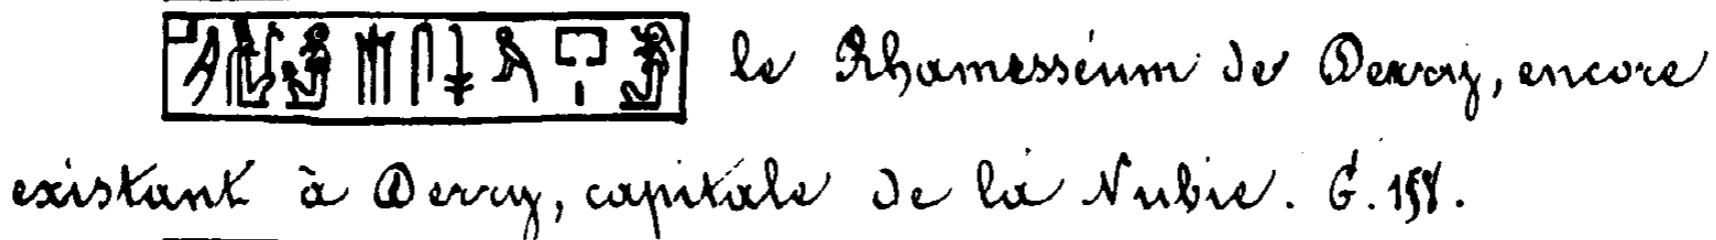 le Rhamesséum de Derry, encore
existant à Derry, capitale de la Nubie. G. 158.